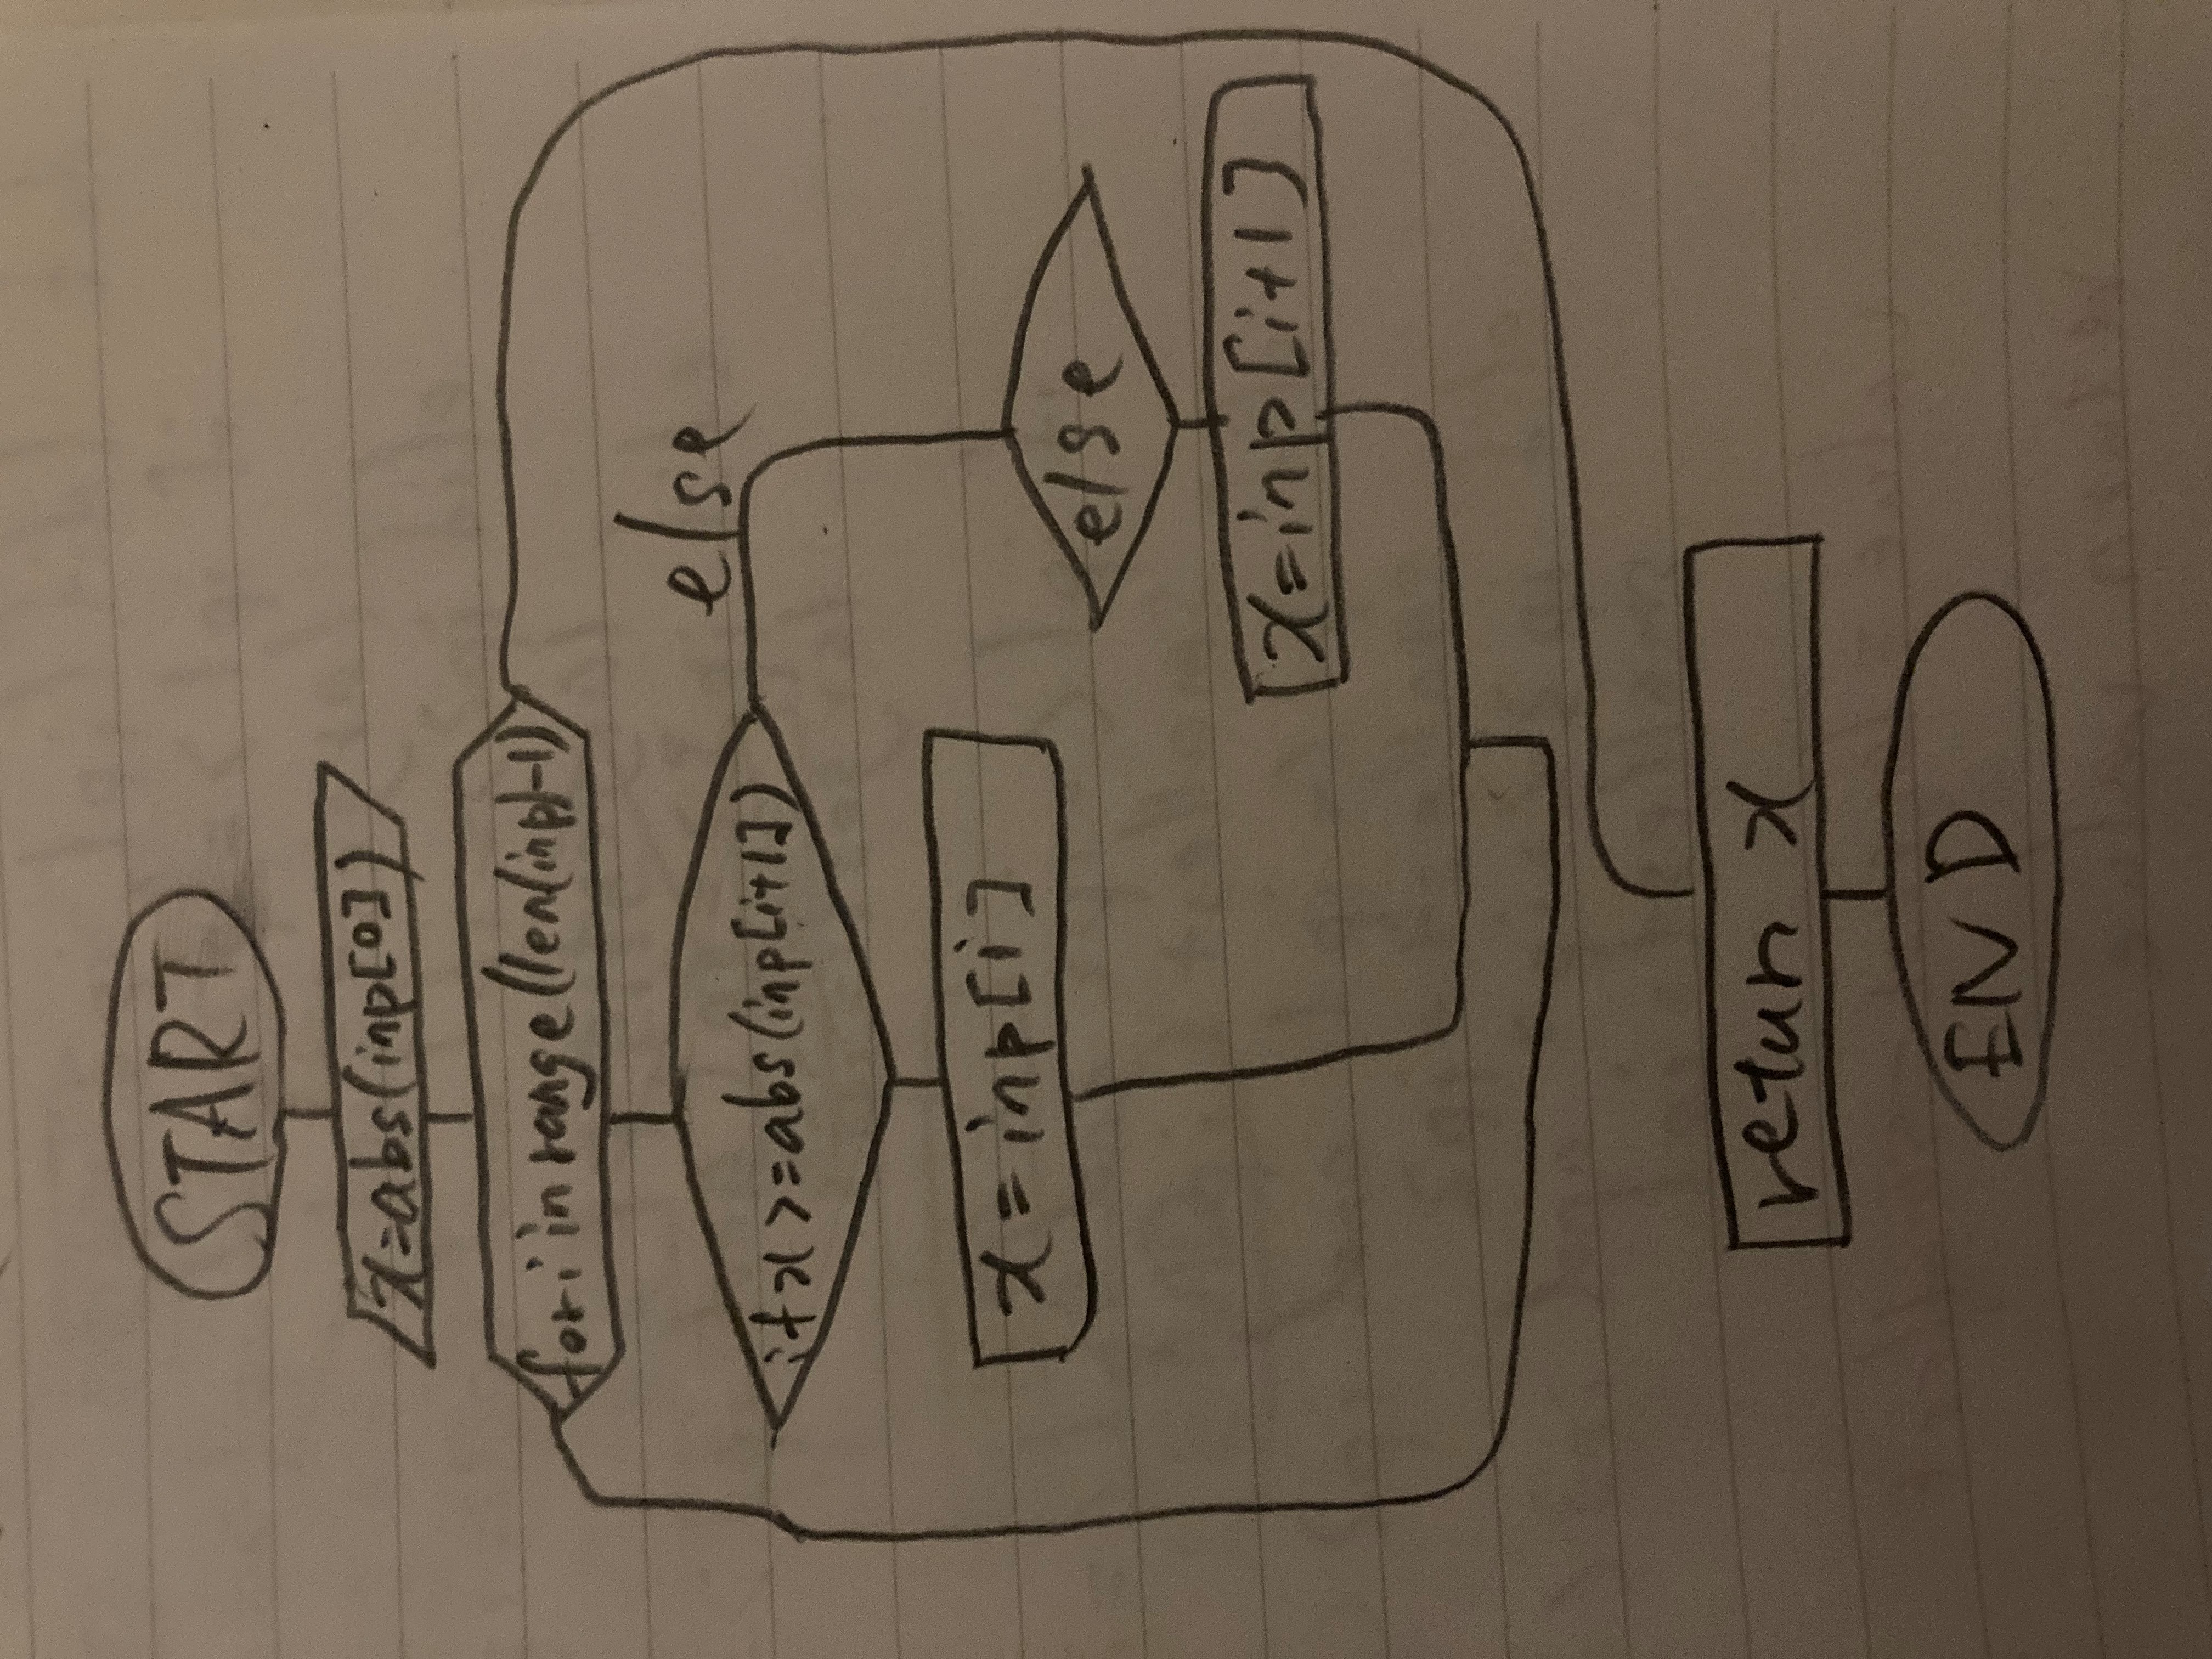 START
x=abs(inp[0])
for i in range((len(inp)-1)
if x>=abs(inp[i+1])
else
x=inp[i]
else
x=inp[i+1]
return x
END